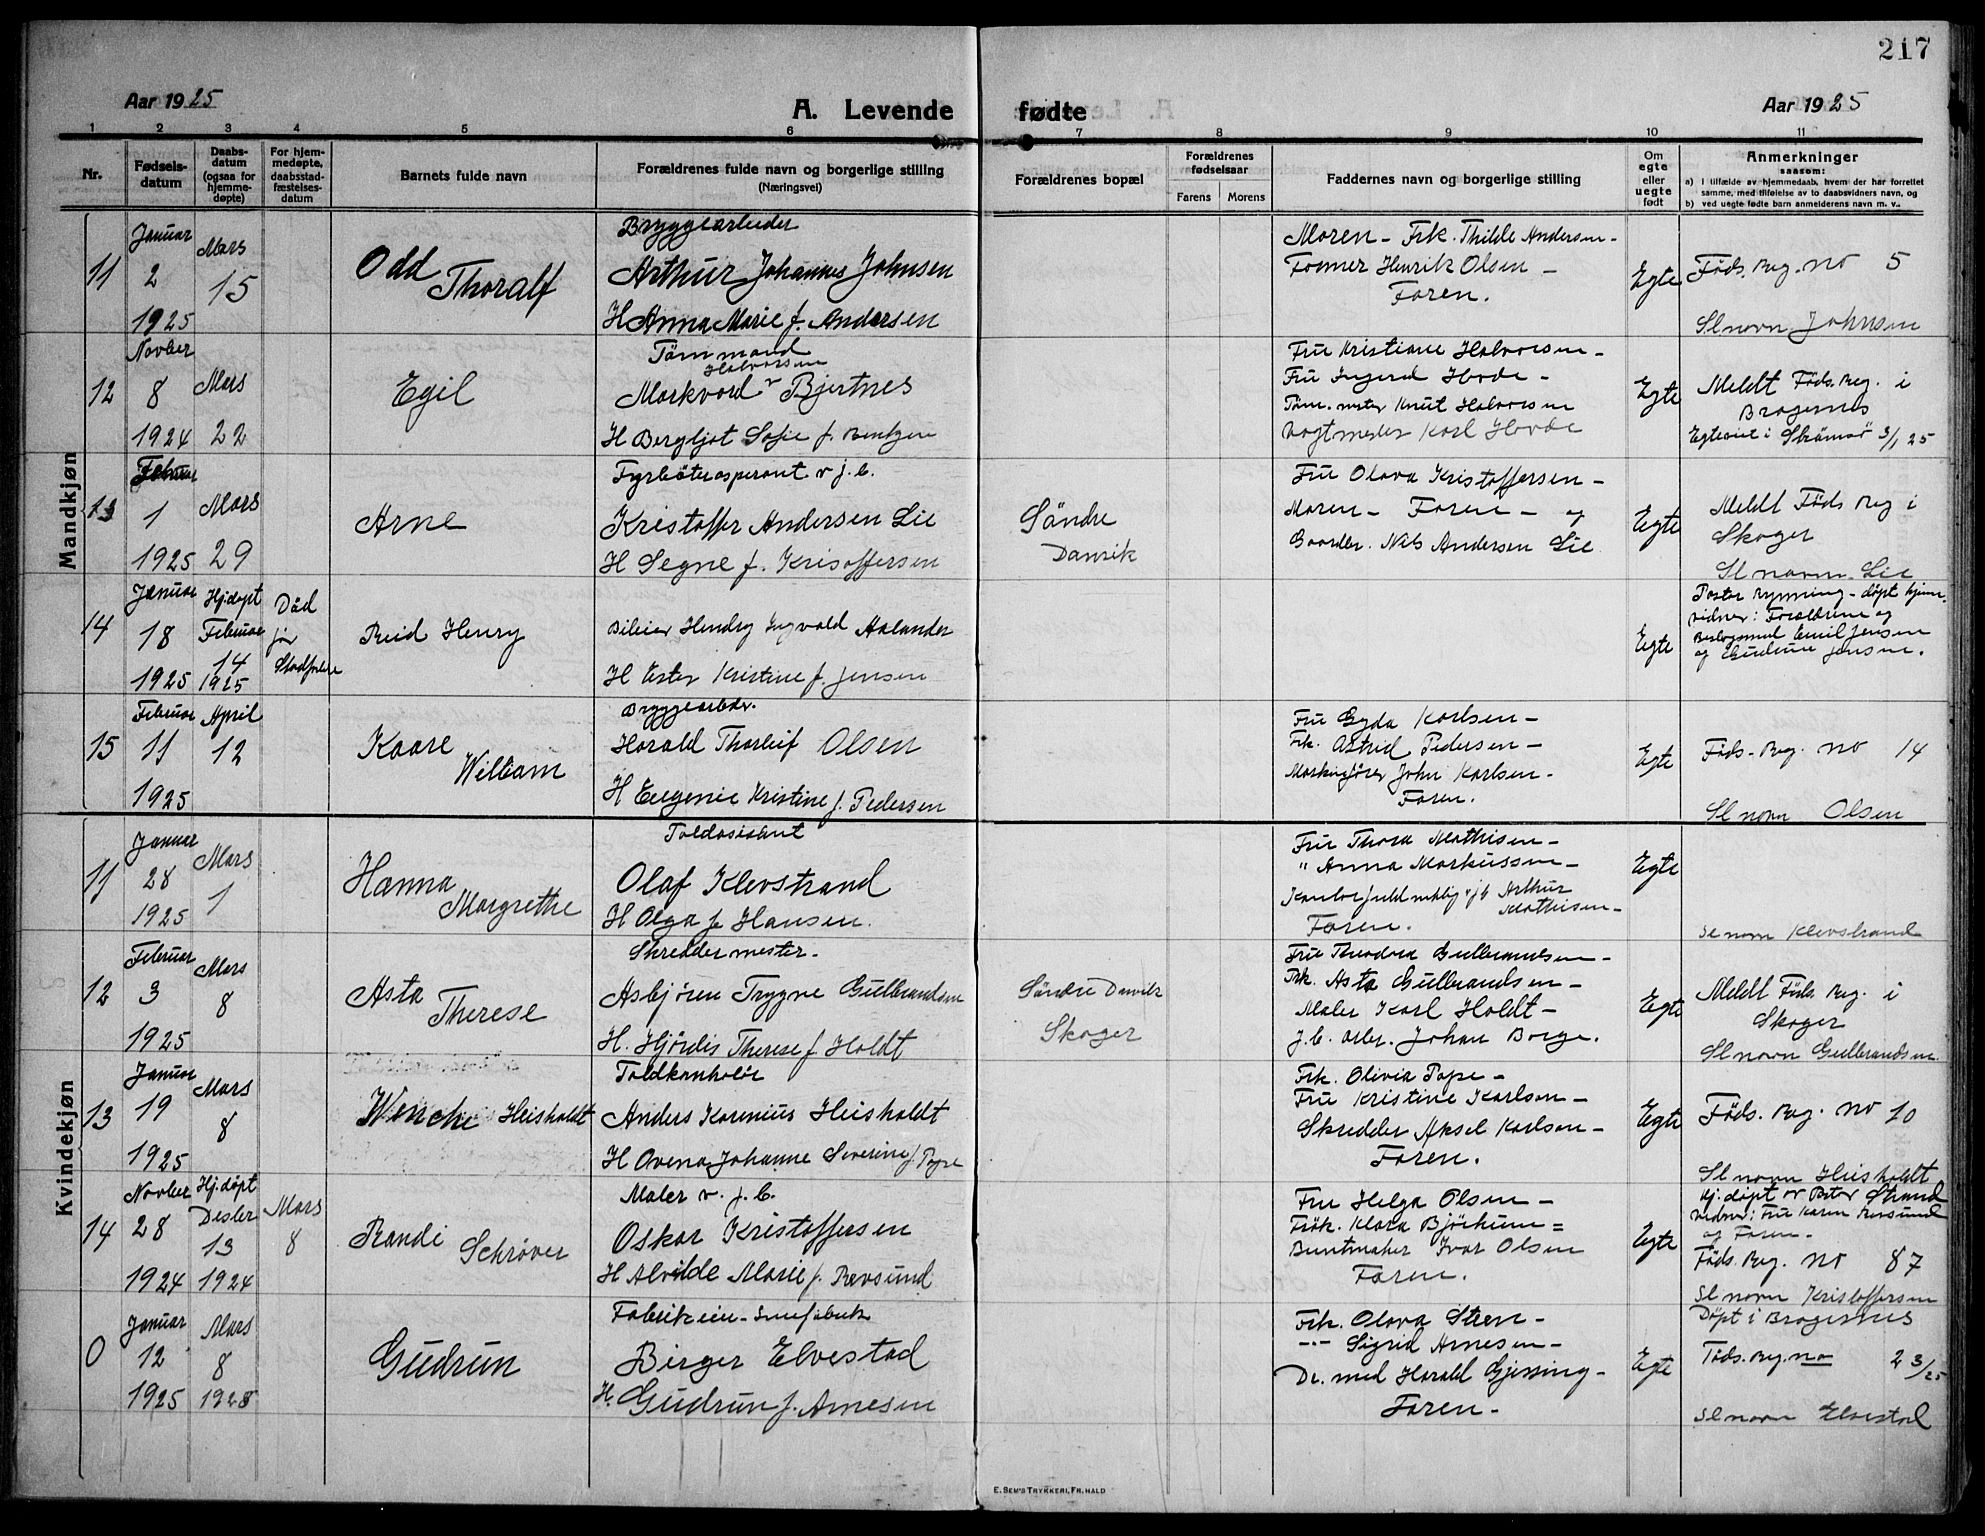 217
Aar 1925
A. Levende fødte
Aar 1925
1 2 3 4 5 6 7 8 9 10 11
Nr.
Fødselsdatum
Daabsdatum (ogsaa for hjemmedøpte)
For hjemmedøpte, daabsstadfæstelsesdatum
Barnets fulde navn
Forældrenes fulde navn og borgerlige stilling
(Næringsvei)
Forældrenes bopæl
Forældrenes fødselsaar
Farens Morens
Faddernes navn og borgerlige stilling
Om egte eller uegte født
Anmerkninger
saasom:
a) I tilfælde av hjemmedaab, hvem der har forrettet
samme, med tilføielse av to daabsvidners navn, og
b) ved uegte fødte barn anmelderens navn m. v.
Mandkjøn
11
Januar
2
1925
Mars
15
Odd
Thoralf
Bryggearbeider
Arthur Johannes Johnsen
H Anna Marie f. Andersen
Moren - Frk. Thilde Andersen -
Henrik Olsen -
Faren.
Egte
Føds. Reg. no 5
Sl navn Johnsen
12
Novber
8
1924
Mars
22
Egil
Tømmand
Halvorsen
Markvard v Bjertnes
H Bergljot Sofie f. Bentzen
Fru Kristiane Halvorsen -
Fru Ingerd Hovde -
Tøm. mester Knut Halvorsen
Vogtmester Karl Hovde
Egte
Meldt Føds. Reg. i
Bragernes
Egteviet i Strømsø 3/1 25
13
Februar
1
1925
Mars
29
Arne
Fyrbøteraspirant v j. b.
Kristoffer Andersen Lie
H Segne f. Kristoffersen
Søndre
Danvik
Fru Olava Kristoffersen -
Moren - Faren - og
Gaardbr. Nils Andersen Lie
Egte
Meldt Føds Reg i
Skoger
Sl navn Lie
14
Januar
18
1925
Hj.døpt
Februar
14
1925
Død
før
Stadfestelse
Reid Henry
Bileier Hendry Ingvald Aalander
H Ester Kristine f. Jensen
Egte
Pastor Rynning - døpt hjem.
vidner: Forældrene og
Emil Jensen
og Gudrun Jensen.
15
Februar
11
1925
April
12
Kaare
William
Bryggearbeder.
Harald Thorleif Olsen
H Eugenie Kristine f. Pedersen
Fru Gyda Karlsen -
Frk. Astrid Pedersen -
John Karlsen -
Faren.
Egte
Føds. Reg. no 14
Sl navn Olsen
Kvindekjøn
11
Januar
28
1925
Mars
1
Hanna
Margrethe
Toldasistent
Olaf Klevstrand
H Olga f. Hansen.
Fru Thora Mathisen -
" Anna Markussen -
Kontorfuldmektig v. j b Arthur
Mathisen -
Faren.
Egte
Sl navn Klevstrand
12
Februar
3
1925
Mars
8
Asta
Therese
Skreddermester.
Asbjören Trygve Gulbrandsen
H. Hjördis Therese f. Holdt
Søndre Danvik
Skoger
Fru Theodora Gulbrandsen -
Frk. Asta Gulbrandsen -
Maler Karl Holdt -
j. b. arbr. Johan Borge.
Egte
Meldt Føds. Reg. i
Skoger
Sl navn Gulbrandsen.
13
Januar
19
1925
Mars
8
Wenche Heisholdt
Toldkontrolør
Anders Karenius Heisholdt
H Ovena Johanne Severine f. Pope
Frk. Olivia Pope -
Fru Kristine Karlsen -
Skredder Aksel Karlsen -
Faren.
Egte
Føds. Reg. no 10
Sl navn Heisholdt
14
Novber
28
1924
Hj.døpt
Desber
13
1924
Mars
8
Randi
Schrøver
Maler v. j. b.
Oskar Kristoffersen
H Alvilde Marie f. Revsund
Fru Helga Olsen -
Frøk. Klara Bjørhum =
Buntmaker Ivar Olsen
Faren.
Egte
Hj. døpt av Pastor Strand
vidner: Fru Karen Revsund
og Faren.
Føds. Reg. no 87
Sl navn Kristoffersen
0
Januar
12
1925
Mars
8
1925
Gudrun
Birger Elvestad
H. Gudrun f. Arnesen
Frk. Olava Steen -
- " - Sigrid Arnesen -
Dr. med Harald Gjessing -
Faren -
Egte
Døpt i Bragernes
Føds. Reg. no 2 3/25
Sl navn Elvestad
E. Sem's Trykkeri, Fr.hald